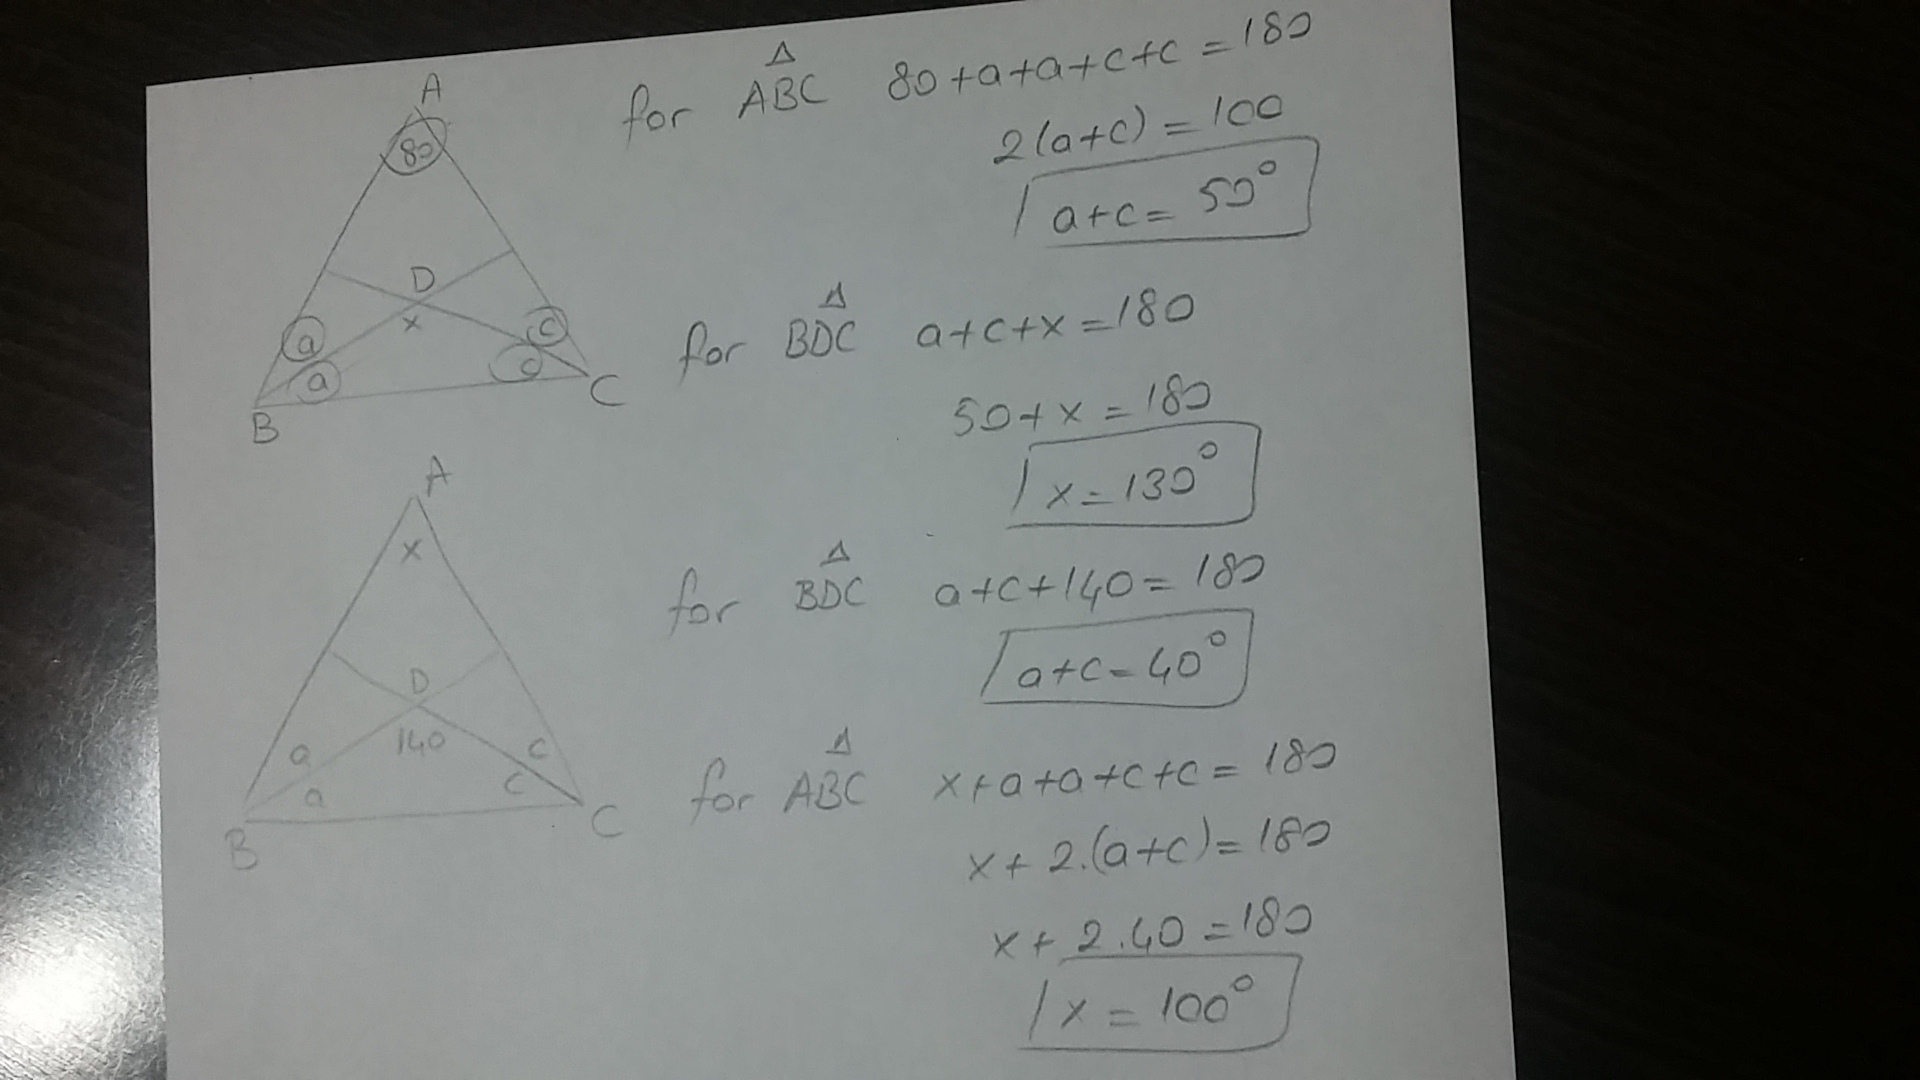 A
80
D
x
a
a
c
c
B
C
for ABC 80+a+a+c+c=180
2(a+c)=100
a+c=50°
for BDC a+c+x=180
50+x=180
x=130°
A
x
D
140
a
a
c
c
B
C
for BDC a+c+140=180
a+c=40°
for ABC x+a+a+c+c=180
x+2.(a+c)=180
x+2.40=180
x=100°